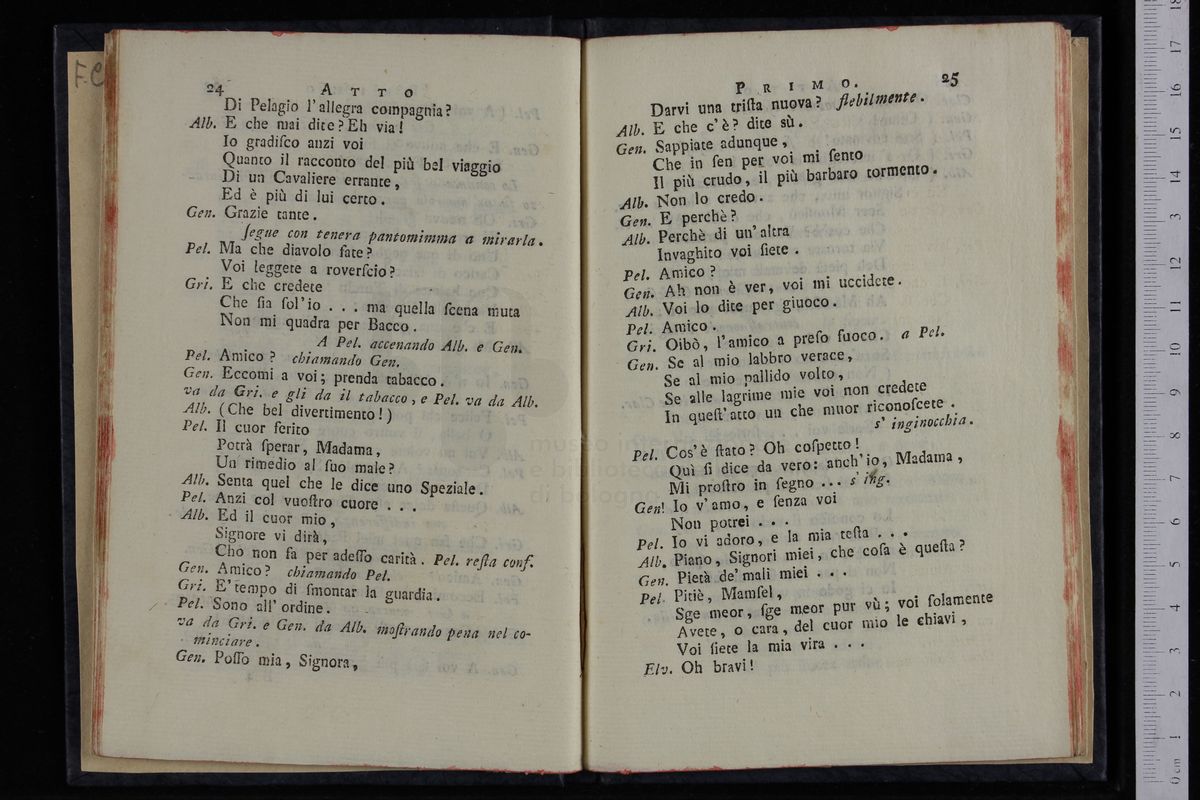 F.C
24 ATTO
Di Pelagio l'allegra compagnia?
Alb. E che mai dite? Eh via!
Io gradiſco anzi voi
Quanto il racconto del più bel viaggio
Di un Cavaliere errante,
Ed è più di lui certo.
Gen. Grazie tante.
ſegue con tenera pantomimma a mirarla.
Pel. Ma che diavolo fate?
Voi leggete a roverſcio?
Gri. E che credete
Che ſia ſol'io . . . ma quella ſcena muta
Non mi quadra per Bacco.
A Pel. accenando Alb. e Gen.
Pel. Amico? chiamando Gen.
Gen. Eccomi a voi; prenda tabacco.
va da Gri. e gli da il tabacco, e Pel. va da Alb.
Alb. (Che bel divertimento!)
Pel. Il cuor ferito
Potrà ſperar, Madama,
Un rimedio al ſuo male?
Alb. Senta quel che le dice uno Speziale.
Pel. Anzi col vuoſtro cuore . . .
Alb. Ed il cuor mio,
Signore vi dirà,
Cho non fa per adeſſo carità. Pel. reſta conf.
Gen. Amico? chiamando Pel.
Gri. E' tempo di ſmontar la guardia.
Pel. Sono all'ordine.
va da Gri. e Gen. da Alb. moſtrando pena nel co-
minciare.
Gen. Poſſo mia, Signora,
PRIMO. 25
Darvi una triſta nuova? flebilmente.
Alb. E che c'è? dite sù.
Gen. Sappiate adunque,
Che in ſen per voi mi ſento
Il più crudo, il più barbaro tormento.
Alb. Non lo credo.
Gen. E perchè?
Alb. Perchè di un'altra
Invaghito voi ſiete.
Pel. Amico?
Gen. Ah non è ver, voi mi uccidete.
Alb. Voi lo dite per giuoco.
Pel. Amico.
Gri. Oibò, l'amico a preſo fuoco. a Pel.
Gen. Se al mio labbro verace,
Se al mio pallido volto,
Se alle lagrime mie voi non credete
In queſt'atto un che muor riconoſcete.
s'inginocchia.
Pel. Cos'è ſtato? Oh coſpetto!
Quì ſi dice da vero: anch'io, Madama,
Mi proſtro in ſegno ... s'ing.
Gen! Io v'amo, e ſenza voi
Non potrei . . .
Pel. Io vi adoro, e la mia teſta . . .
Alb. Piano, Signori miei, che coſa è queſta?
Gen. Pietà de' mali miei . . .
Pel. Pitiè, Mamſel,
Sge meor, ſge meor pur vù; voi ſolamente
Avete, o cara, del cuor mio le chiavi,
Voi ſiete la mia vira . . .
Elv. Oh bravi!
museo inter
e biblioteca
di bologna
0 cm 1 2 3 4 5 6 7 8 9 10 11 12 13 14 15 16 17 18